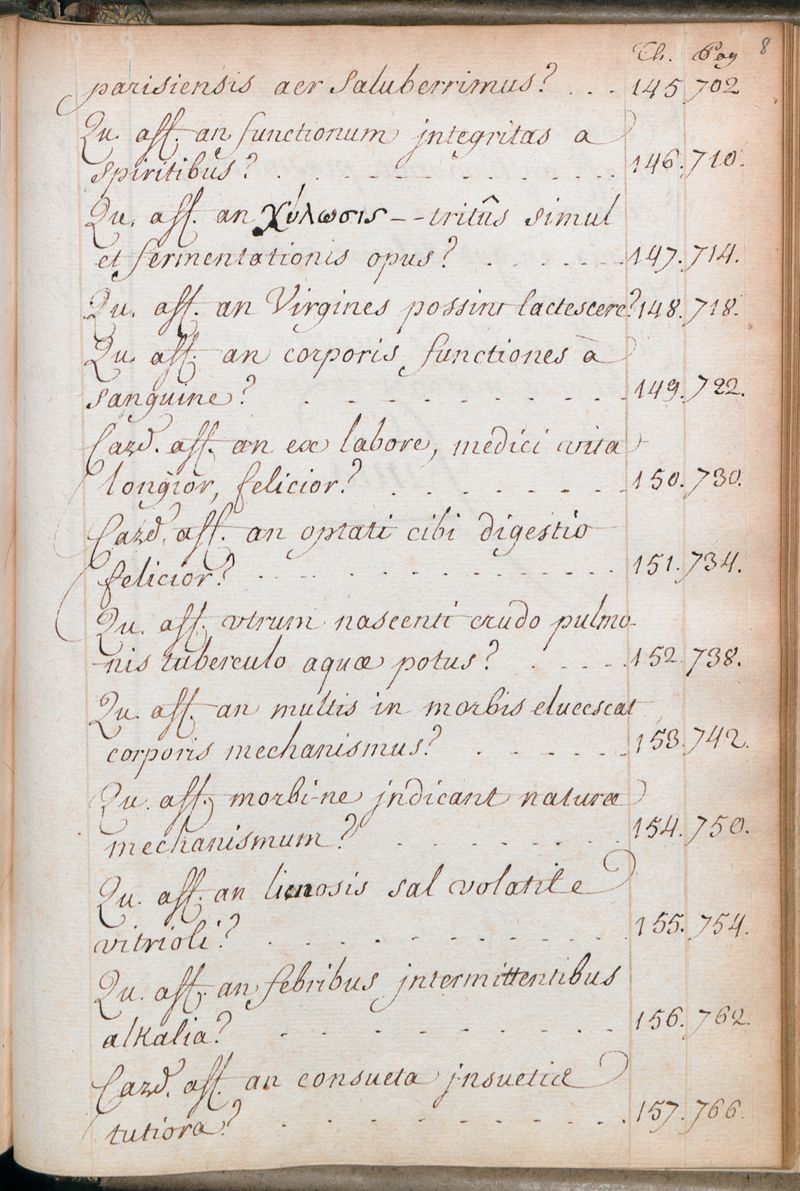 Th. Pag 8
parisiensis aer saluberrimus? . . . 145. 702
Qu. aff. an functionum jntegritas a
spiritibus? 146. 710.
Qu. aff. an χύλωσις - - tritûs simul
et fermentationis opus? 147. 714.
Qu. aff. an Virgines possint lactescere? 148. 718.
Qu. aff. an corporis functiones à
sanguine? 149. 722.
Card. aff. an ex labore, medici vita
longior, felicior? 150. 730.
Card. aff. an optati cibi digestio
felicior? 151. 734.
Qu. aff. vtrum nascenti crudo pulmo-
nis tuberculo aquæ potus? 152. 738.
Qu. aff. an multis in morbis elucescat
corporis mechanismus? 153. 742.
Qu. aff. morbi-ne jndicant naturæ
mechanismum? 154. 750.
Qu. aff. an lienosis sal volatile
vitrioli? 155. 754.
Qu. aff. an febribus jntermittentibus
alkalia? 156. 762.
Card. aff. an consueta jnsuetis
tutiora? 157. 766.